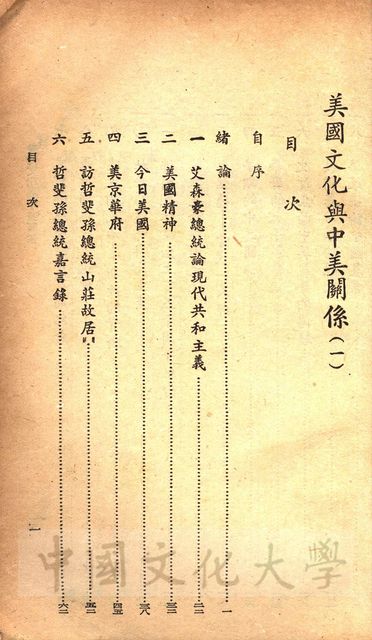 美國文化與中美關係(一)
目次
自序
緒論…………一
一 艾森豪總統論現代共和主義…………二二
二 美國精神…………三二
三 今日美國…………三八
四 美京華府…………四五
五 訪哲斐孫總統山莊故居…………五二
六 哲斐孫總統嘉言錄…………六二
目次 一
中國文化大學